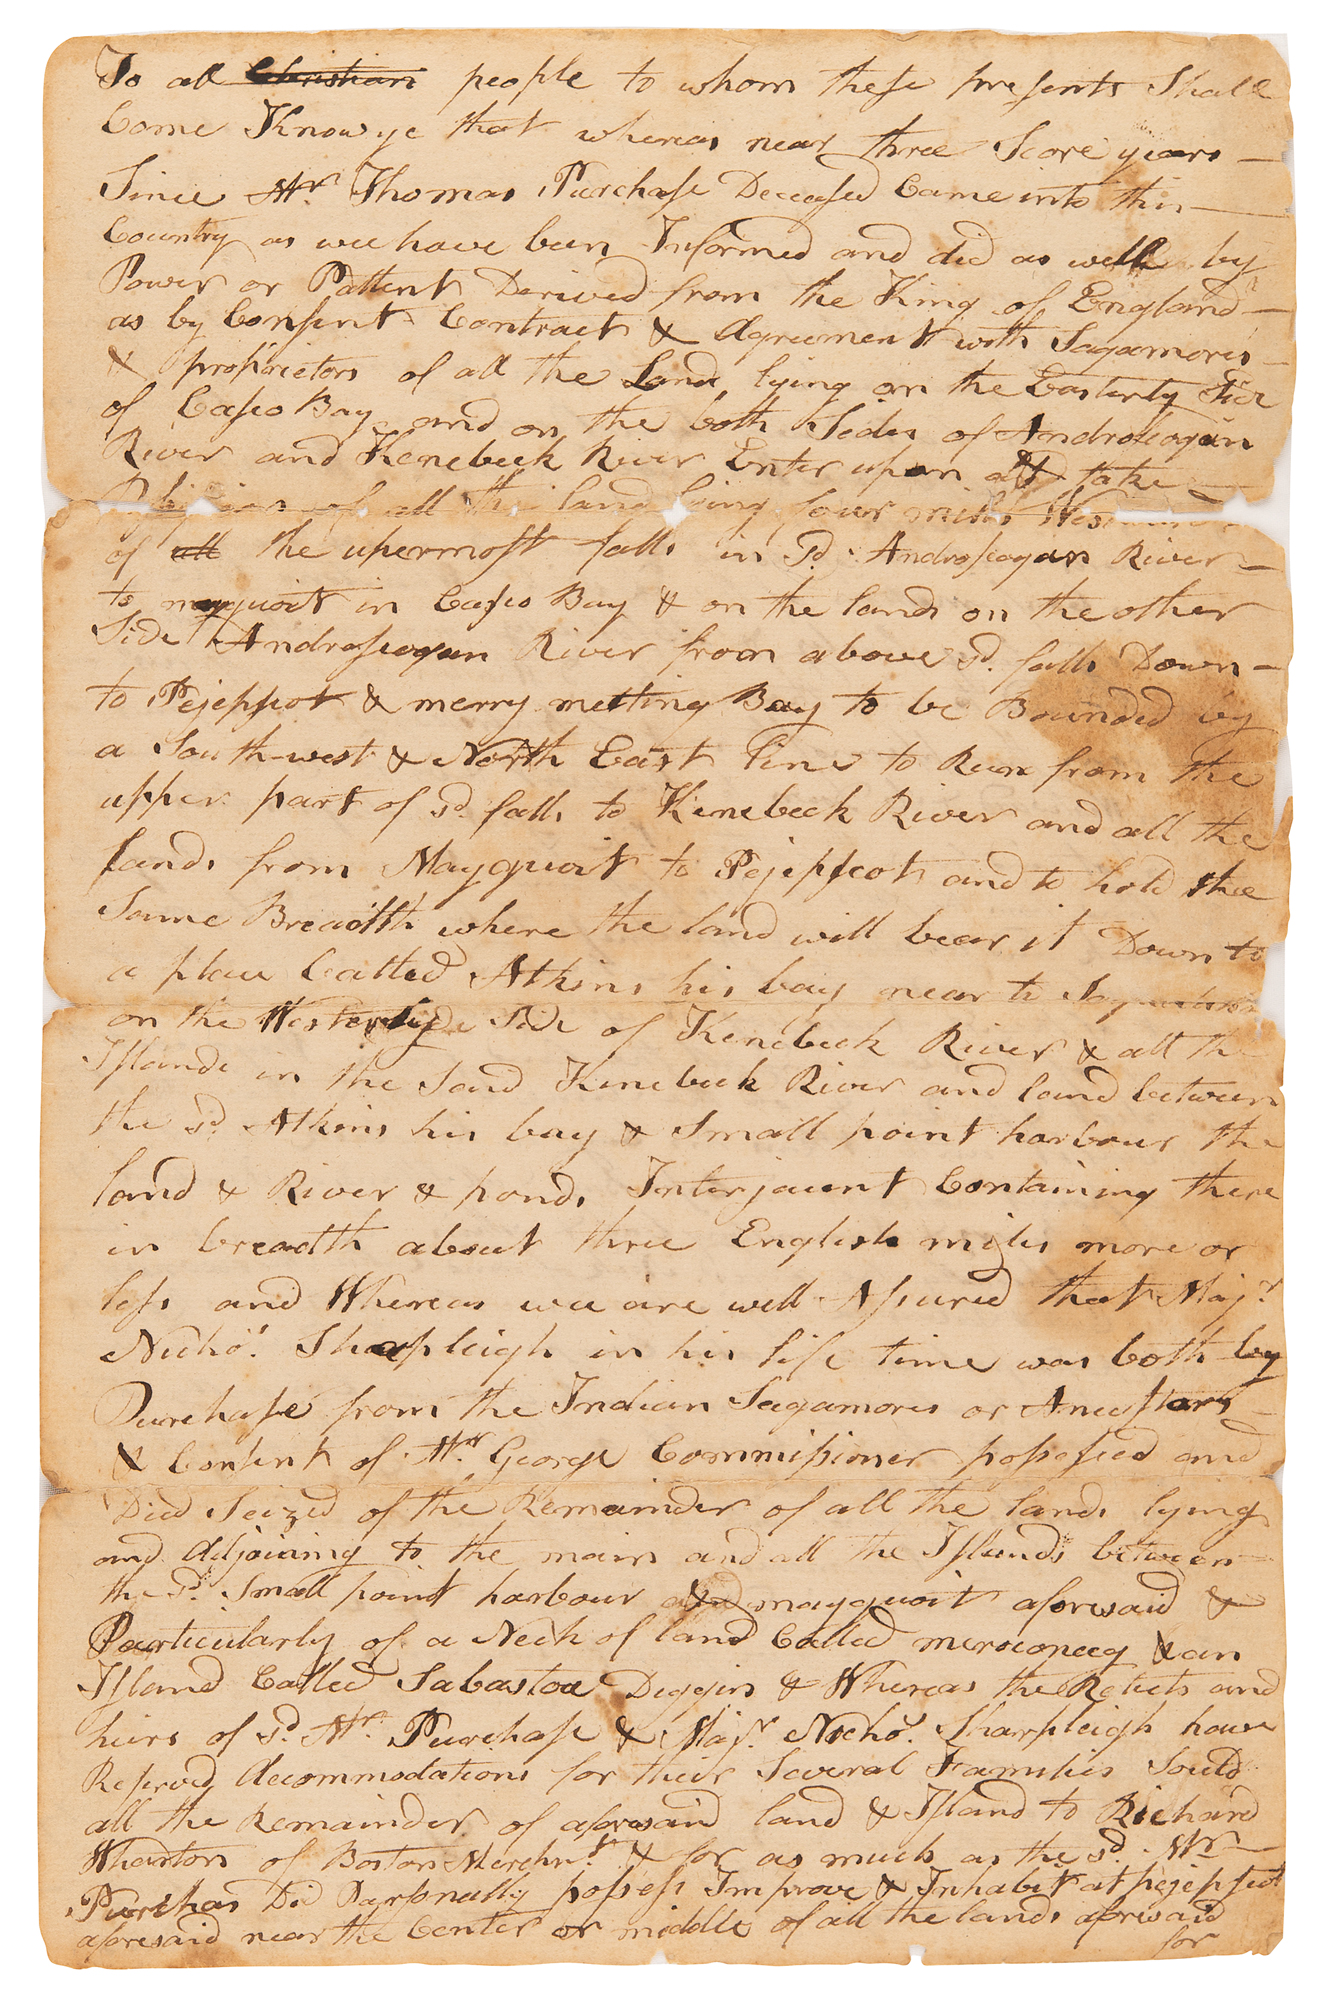 To all Christian people to whom these presents Shall
Come Know ye that whereas near three Score years
Since Mr. Thomas Purchase Deceased Came into this
Country as wee have been Informed and did as well by
Power or Pattent Derived from the King of England
as by Consent Contract & Agreement with Sagamores
& proprietors of all the Land lying on the Easterly Side
of Casco Bay and on the both Sides of Androscogan
River and Kenebeck River Enter upon and take
of all the land lying four miles
of all the upermost falls in Sd. Androscogan River
to mayquoit in Casco Bay & on the lands on the other
Side Androscogan River from above sd. falls Down
to Pejepscot & merry meeting Bay to be Bounded by
a South-west & North East line to Run from the
upper part of sd. falls to Kenebeck River and all the
lands from Mayquoit to Pejepscot and to hold thee
Same Breadth where the land will bear it Down to
a place Called Atkins his bay near to
on the Westerly Side of Kenebeck River & all the
Islands in the Said Kenebeck River and land between
the sd. Atkins his bay & Small point harbour the
land & River & ponds Interjacent Containing there
in breadth about three English miles more or
less and Whereas wee are well Assured that Majr.
Nicho. Sharpleigh in his life time was both by
Purchase from the Indian Sagamores or Ancestors
& Consent of Mr. George Commissioner possessed and
Died Seized of the Remainder of all the lands lying
and Adjoining to the main and all the Islands between
the sd. Small point harbour and mayquoit aforesaid &
Particularly of a Neck of land Called merecuneeg & an
Island Called Sabastoa Diggin & Whereas the Relicts and
heirs of sd. Mr. Purchase & Majr. Nicho. Sharpleigh have
Reserved Accommodations for their Several Families Sould
all the Remainder of aforesaid land & Island to Richard
Wharton of Boston Merchnt. & for as much as the sd. Mr.
Purchas Did Parsonally possess Improve & Inhabit at Pejepscot
aforesaid near the Center or middle of all the lands aforesaid
for